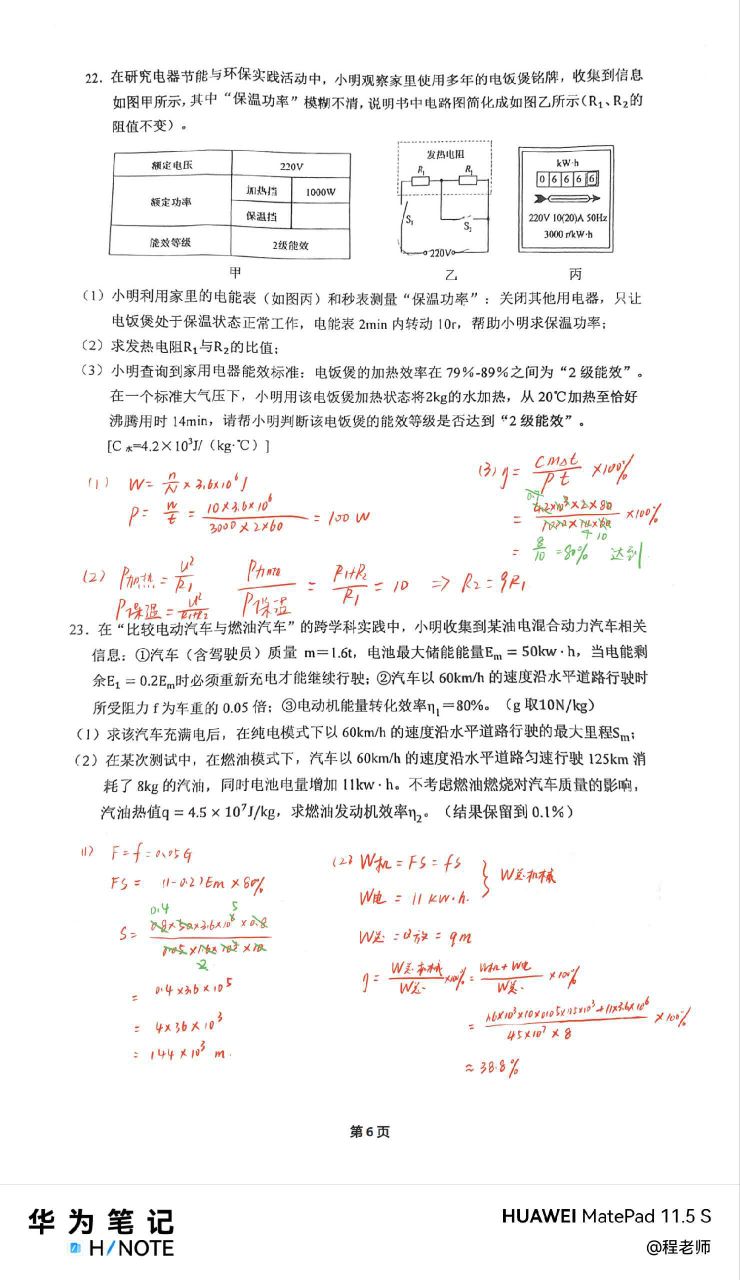 22. 在研究电器节能与环保实践活动中，小明观察家里使用多年的电饭煲铭牌，收集到信息
如图甲所示，其中“保温功率”模糊不清，说明书中电路图简化成如图乙所示（R₁、R₂的
阻值不变）。
额定电压 220V
额定功率 加热挡 1000W
保温挡
能效等级 2级能效
甲
发热电阻
R₁ R₂
S₁ S₂
220V
乙
kW·h
0 6 6 6 6
220V 10(20)A 50Hz
3000 r/kW·h
丙
（1）小明利用家里的电能表（如图丙）和秒表测量“保温功率”：关闭其他用电器，只让
电饭煲处于保温状态正常工作，电能表 2min 内转动 10r，帮助小明求保温功率；
（2）求发热电阻R₁与R₂的比值；
（3）小明查询到家用电器能效标准：电饭煲的加热效率在 79%-89%之间为“2 级能效”。
在一个标准大气压下，小明用该电饭煲加热状态将2kg的水加热，从 20℃加热至恰好
沸腾用时 14min，请帮小明判断该电饭煲的能效等级是否达到“2 级能效”。
[C水=4.2×10³J/（kg·℃）]
(1) W= n/N × 3.6×10⁶ J
P= W/t = 10×3.6×10⁶ / 3000×2×60 = 100 W
(3) η = cmΔt / Pt ×100%
= 4.2×10³×2×80 / 1000×14×60 ×100%
= 8/10 =80% 达到
(2) P加热 = U²/R₁
P保温 = U²/R₁+R₂
P加热 / P保温 = R₁+R₂ / R₁ = 10 ⇒ R₂ = 9R₁
23. 在“比较电动汽车与燃油汽车”的跨学科实践中，小明收集到某油电混合动力汽车相关
信息：①汽车（含驾驶员）质量 m=1.6t，电池最大储能能量Eₘ = 50kw·h，当电能剩
余E₁ = 0.2Eₘ时必须重新充电才能继续行驶；②汽车以 60km/h 的速度沿水平道路行驶时
所受阻力 f 为车重的 0.05 倍；③电动机能量转化效率η₁=80%。（g 取10N/kg）
（1）求该汽车充满电后，在纯电模式下以 60km/h 的速度沿水平道路行驶的最大里程Sₘ；
（2）在某次测试中，在燃油模式下，汽车以 60km/h 的速度沿水平道路匀速行驶 125km 消
耗了 8kg 的汽油，同时电池电量增加 11kw·h。不考虑燃油燃烧对汽车质量的影响，
汽油热值q = 4.5 × 10⁷J/kg，求燃油发动机效率η₂。（结果保留到 0.1%）
(1) F=f=0.05G
FS = (1-0.2)Em × 80%
0.4 5
S= 0.8×50×3.6×10⁶×0.8 / 0.05×1.6×10³×10
2
= 0.4×3.6×10⁵
= 4×36×10³
= 144×10³ m.
(2) W机 = FS = fs
W电 = 11 kw·h.
W总机械
W总 = Q放 = qm
η = W总机械/W总 ×100% = W机+W电 / W总 ×100%
= 1.6×10³×10×0.05×125×10³+11×3.6×10⁶ / 4.5×10⁷×8 ×100%
≈ 38.8%
第 6 页
华为笔记
HINOTE
HUAWEI MatePad 11.5 S
@程老师